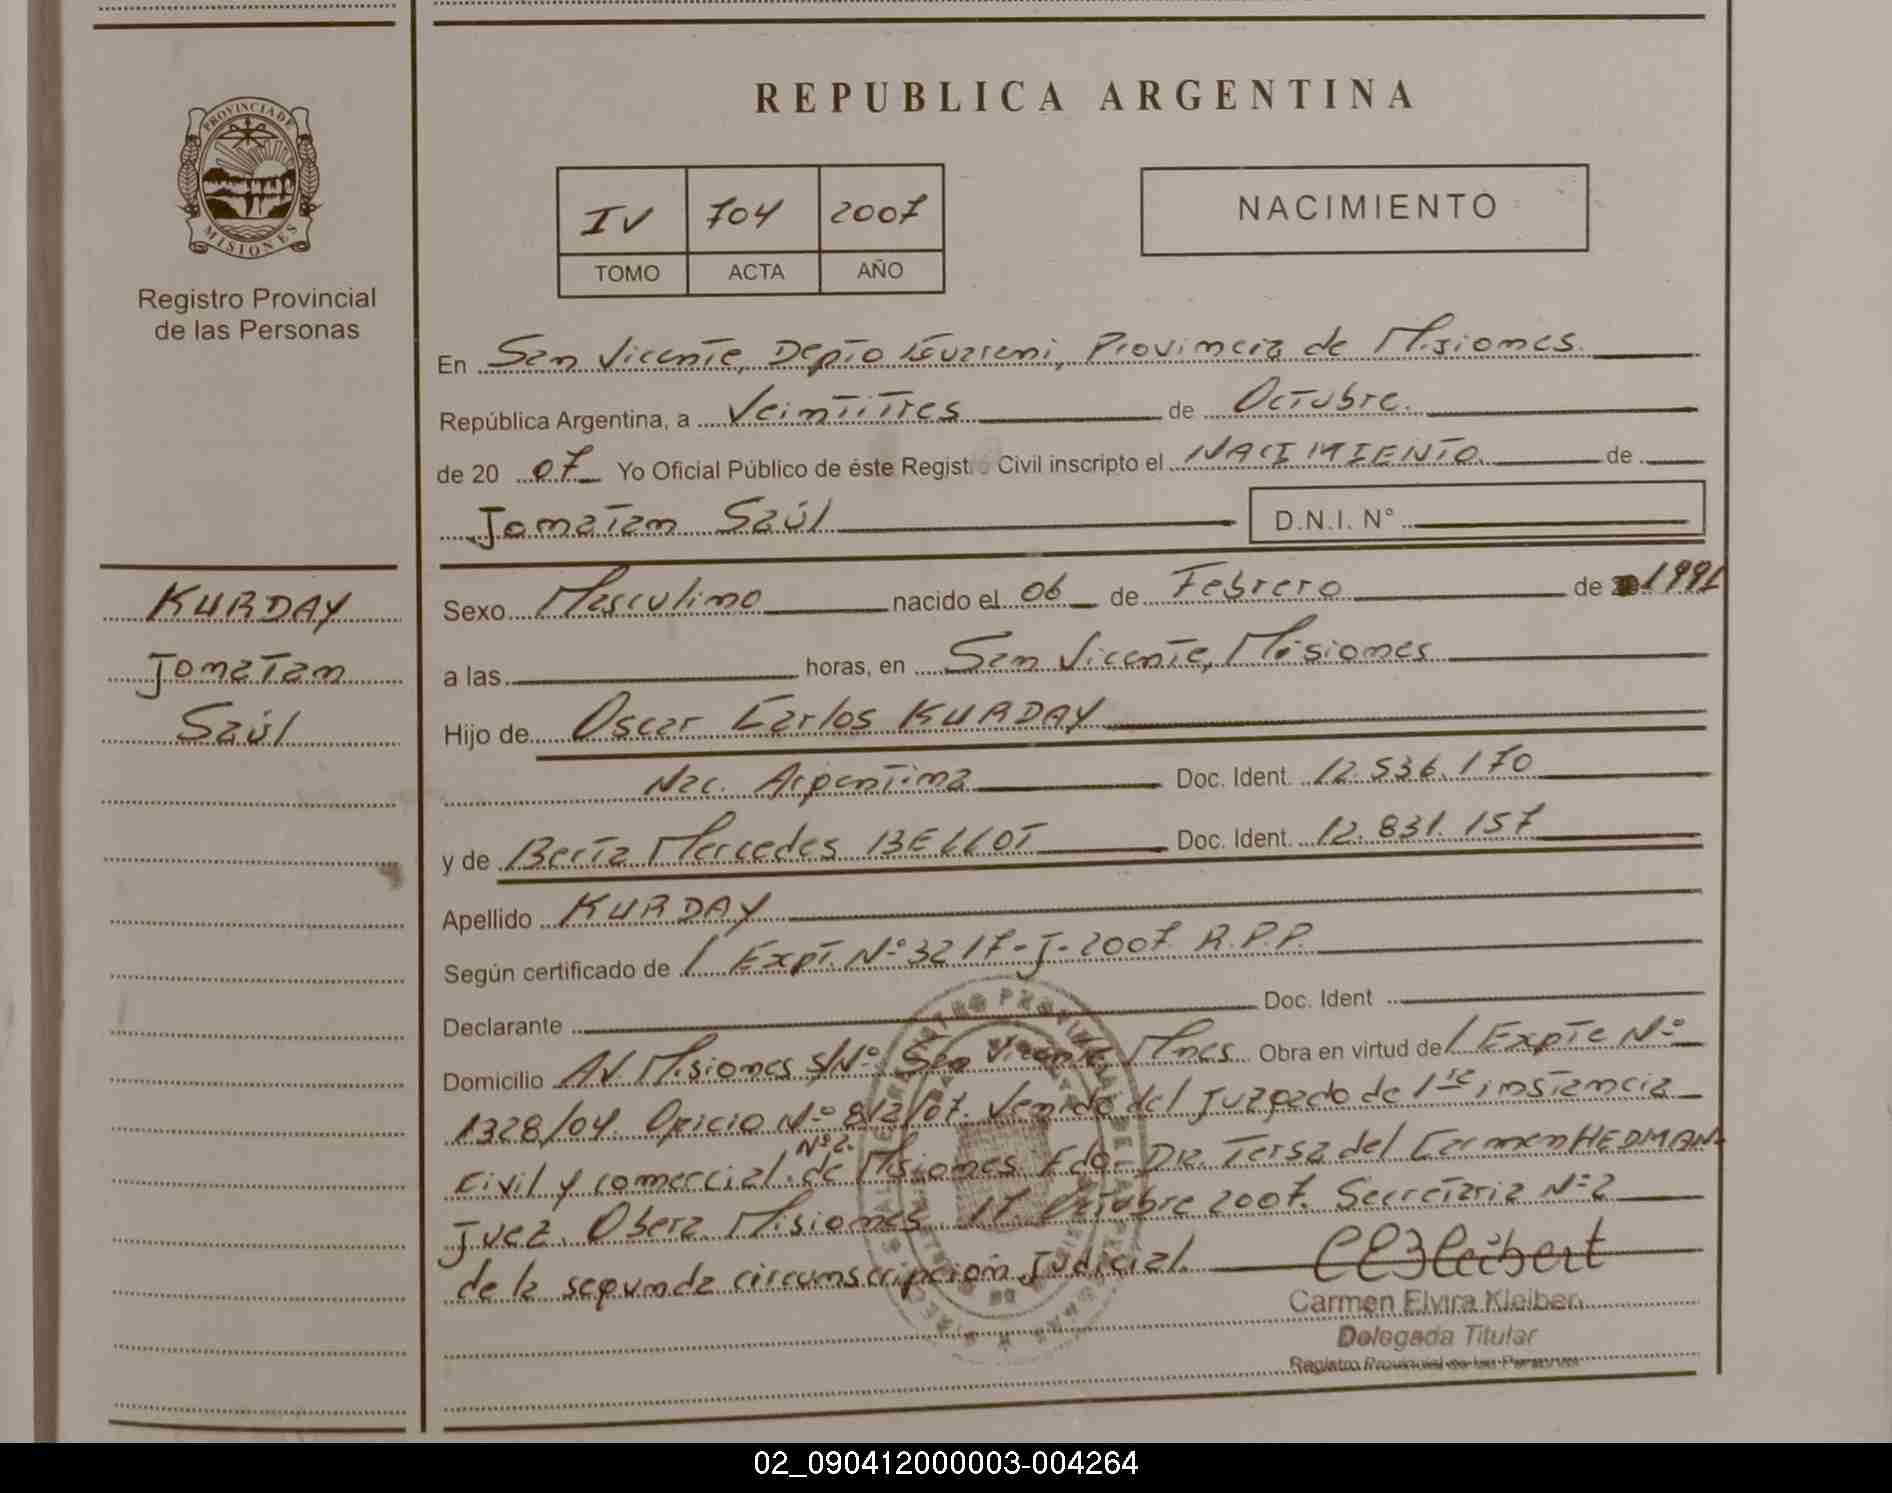 REPUBLICA ARGENTINA
PROVINCIA DE
MISIONES
Registro Provincial
de las Personas
IV 704 2007
TOMO ACTA AÑO
NACIMIENTO
En San Vicente, Depto Guaraní, Provincia de Misiones.
República Argentina, a Veintitres de Octubre.
de 20 07 Yo Oficial Público de éste Registro Civil inscripto el NACIMIENTO de
Jonatan Saúl D.N.I. N°
KURDAY
Jonatan
Saúl
Sexo Masculino nacido el 06 de Febrero de 1991
a las horas, en San Vicente, Misiones
Hijo de Oscar Carlos KURDAY
Nac. Argentina Doc. Ident. 12.536.170
y de Berta Mercedes BELLOT Doc. Ident. 12.831.157
Apellido KURDAY
Según certificado de / Expt. N° 3217-J-2007 R.P.P.
Declarante Doc. Ident
Domicilio AV. Misiones S/N° San Vicente Mnes. Obra en virtud de / Expte N°
1328/04. Oficio N° 812/07. Venido del Juzgado de 1ra instancia
N° 2.
civil y comercial. de Misiones Fdo- DR. Tersa del Carmen HEDMAN-
Juez. Obera. Misiones 17. Octubre 2007. Secretaria N° 2
de la segunda circunscripción Judicial.
Carmen Elvira Kleibert
Delegada Titular
Registro Provincial de las Personas
02_090412000003-004264